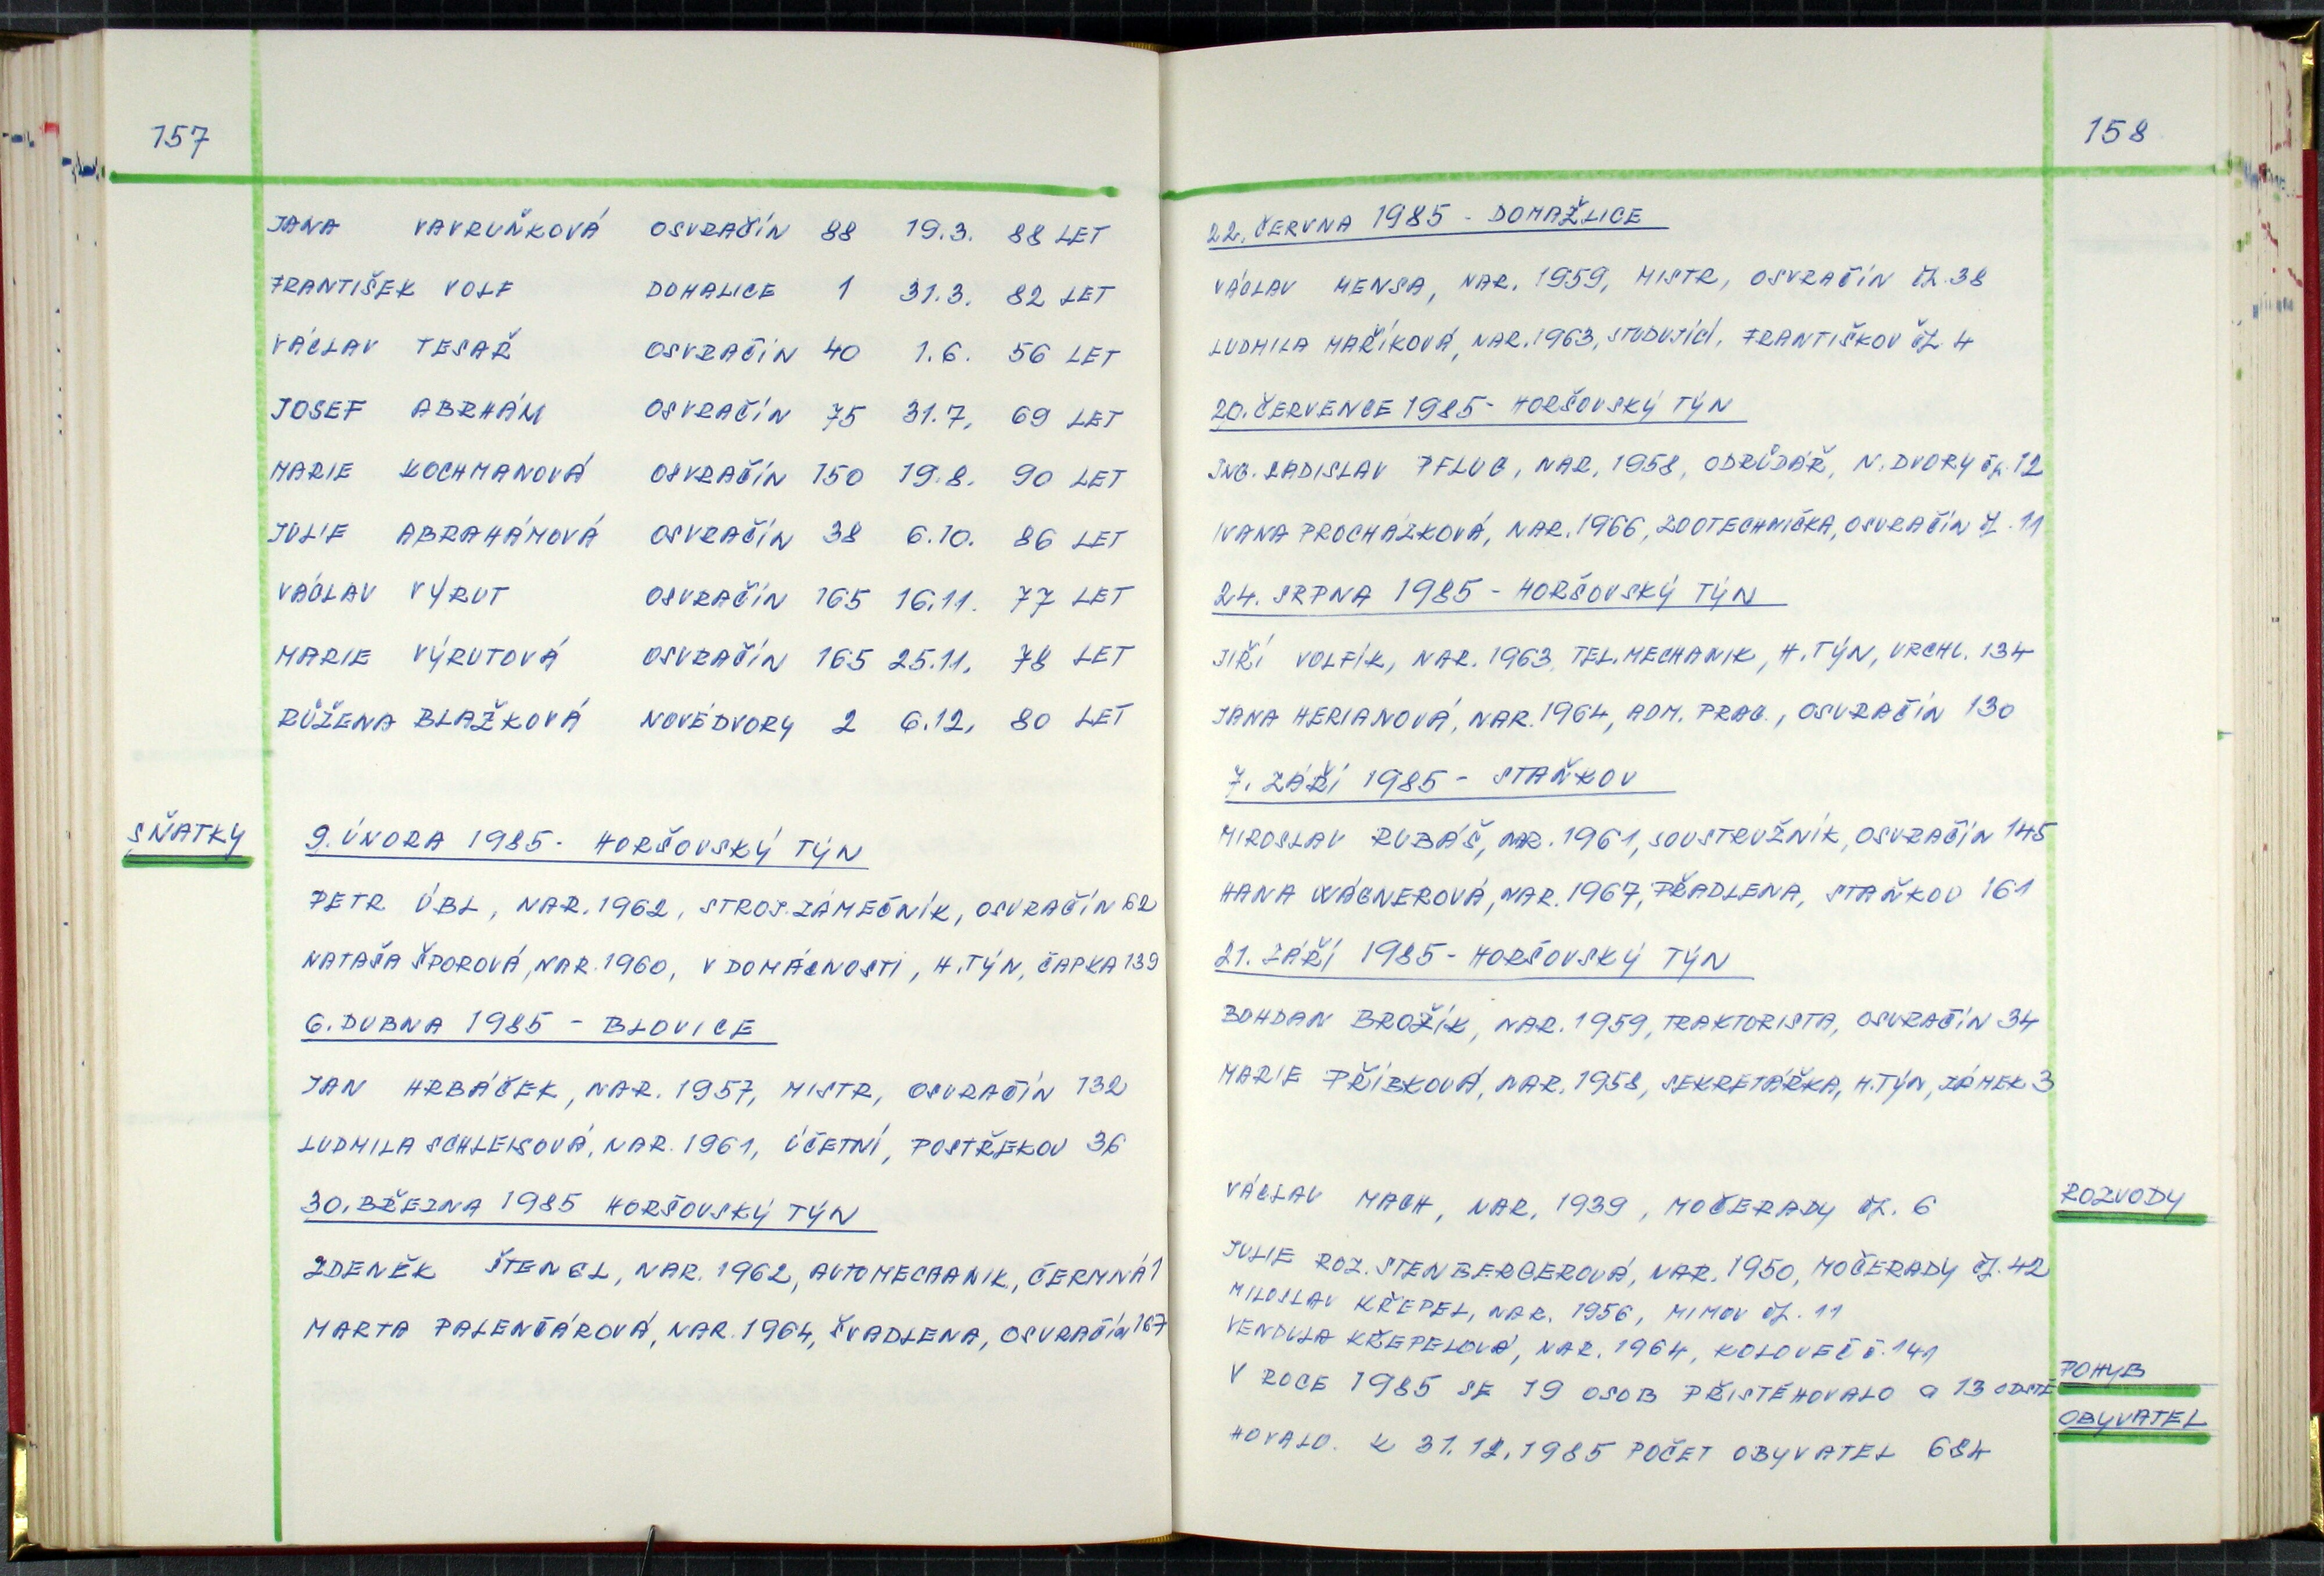 157
JANA VAVRUŇKOVÁ OSVRAČÍN 88 19.3. 88 LET
FRANTIŠEK VOLF DOHALICE 1 31.3. 82 LET
VÁCLAV TESAŘ OSVRAČÍN 40 1.6. 56 LET
JOSEF ABRHÁM OSVRAČÍN 75 31.7. 69 LET
MARIE KOCHMANOVÁ OSVRAČÍN 150 19.8. 90 LET
JULIE ABRAHÁMOVÁ OSVRAČÍN 38 6.10. 86 LET
VÁCLAV VÝRUT OSVRAČÍN 165 16.11. 77 LET
MARIE VÝRUTOVÁ OSVRAČÍN 165 25.11. 78 LET
RŮŽENA BLAŽKOVÁ NOVÉ DVORY 2 6.12. 80 LET
SŇATKY
9. ÚNORA 1985 - HORŠOVSKÝ TÝN
PETR ÚBL, NAR. 1962, STROJ. ZÁMEČNÍK, OSVRAČÍN 62
NATAŠA ŠPOROVÁ, NAR. 1960, V DOMÁCNOSTI, H. TÝN, ČAPKA 139
6. DUBNA 1985 - BLOVICE
JAN HRBÁČEK, NAR. 1957, MISTR, OSVRAČÍN 132
LUDMILA SCHLEISOVÁ, NAR. 1961, ÚČETNÍ, POSTŘEKOV 36
30. BŘEZNA 1985 HORŠOVSKÝ TÝN
ZDENĚK ŠTENGL, NAR. 1962, AUTOMECHANIK, ČERMNÁ 1
MARTA PALENČÁROVÁ, NAR. 1964, ŠVADLENA, OSVRAČÍN 167
158
22. ČERVNA 1985 - DOMAŽLICE
VÁCLAV MENSA, NAR. 1959, MISTR, OSVRAČÍN ČP. 38
LUDMILA MAŘÍKOVÁ, NAR. 1963, STUDUJÍCÍ, FRANTIŠKOV ČP. 4
20. ČERVENCE 1985 - HORŠOVSKÝ TÝN
ING. LADISLAV PFLUG, NAR. 1958, ODRŮDÁŘ, N. DVORY ČP. 12
IVANA PROCHÁZKOVÁ, NAR. 1966, ZOOTECHNIČKA, OSVRAČÍN ČP. 11
24. SRPNA 1985 - HORŠOVSKÝ TÝN
JIŘÍ VOLFÍK, NAR. 1963, TEL. MECHANIK, H. TÝN, VRCHL. 134
JANA HERIANOVÁ, NAR. 1964, ADM. PRAC., OSVRAČÍN 130
7. ZÁŘÍ 1985 - STAŇKOV
MIROSLAV RUBÁŠ, NAR. 1961, SOUSTRUŽNÍK, OSVRAČÍN 145
HANA WÁGNEROVÁ, NAR. 1967, PŘADLENA, STAŇKOV 161
21. ZÁŘÍ 1985 - HORŠOVSKÝ TÝN
BOHDAN BROŽÍK, NAR. 1959, TRAKTORISTA, OSVRAČÍN 34
MARIE PŘÍBKOVÁ, NAR. 1958, SEKRETÁŘKA, H. TÝN, ZÁMEK 3
ROZVODY
VÁCLAV MACH, NAR. 1939, MOČERADY ČP. 6
JULIE ROZ. STENBERGEROVÁ, NAR. 1950, MOČERADY ČP. 42
MILOSLAV KŘEPEL, NAR. 1956, MIMOV ČP. 11
VENDULA KŘEPELOVÁ, NAR. 1964, KOLOVEČ Č. 141
POHYB
OBYVATEL
V ROCE 1985 SE 19 OSOB PŘISTĚHOVALO a 13 ODSTĚ
HOVALO. K 31.12.1985 POČET OBYVATEL 684